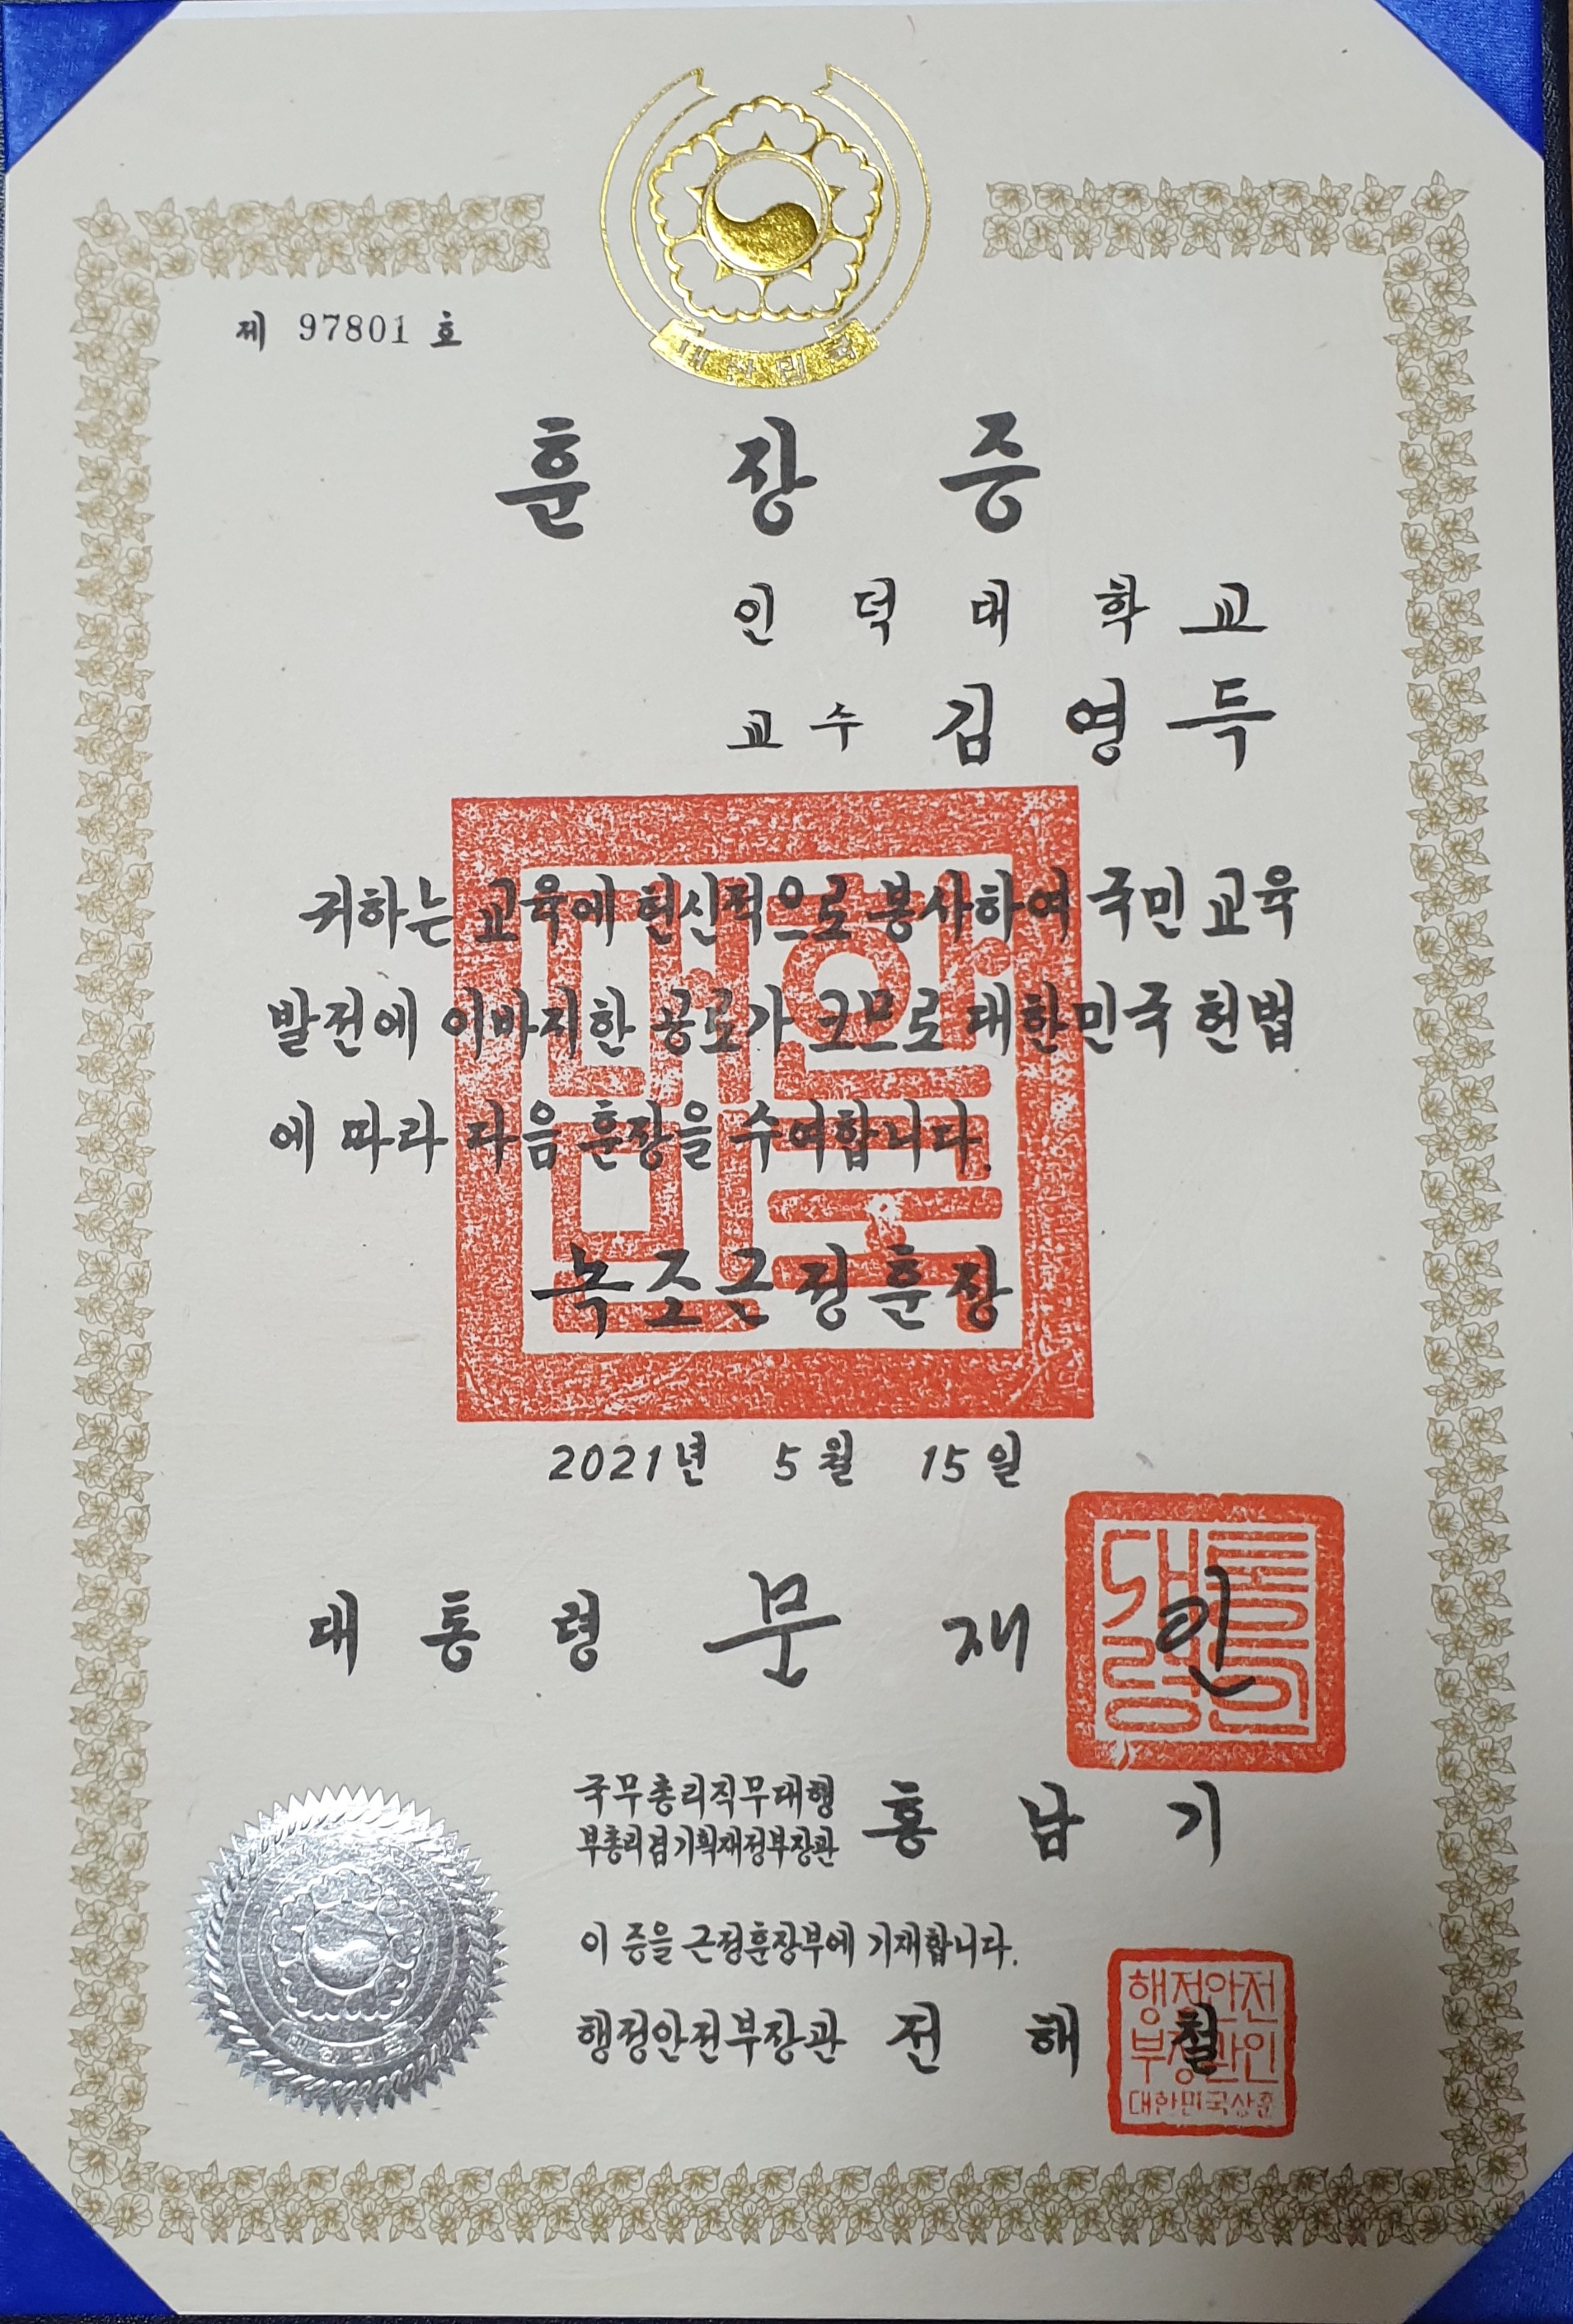 대한민국
제 97801 호
훈장증
인덕대학교
교수 김영득
귀하는 교육에 헌신적으로 봉사하여 국민교육
발전에 이바지한 공로가 크므로 대한민국 헌법
에 따라 다음 훈장을 수여합니다.
녹조근정훈장
2021년 5월 15일
대통령 문재인
국무총리직무대행
부총리겸기획재정부장관 홍남기
이 증을 근정훈장부에 기재합니다.
행정안전부장관 전해철
행정안전
부장관인
대한민국상훈